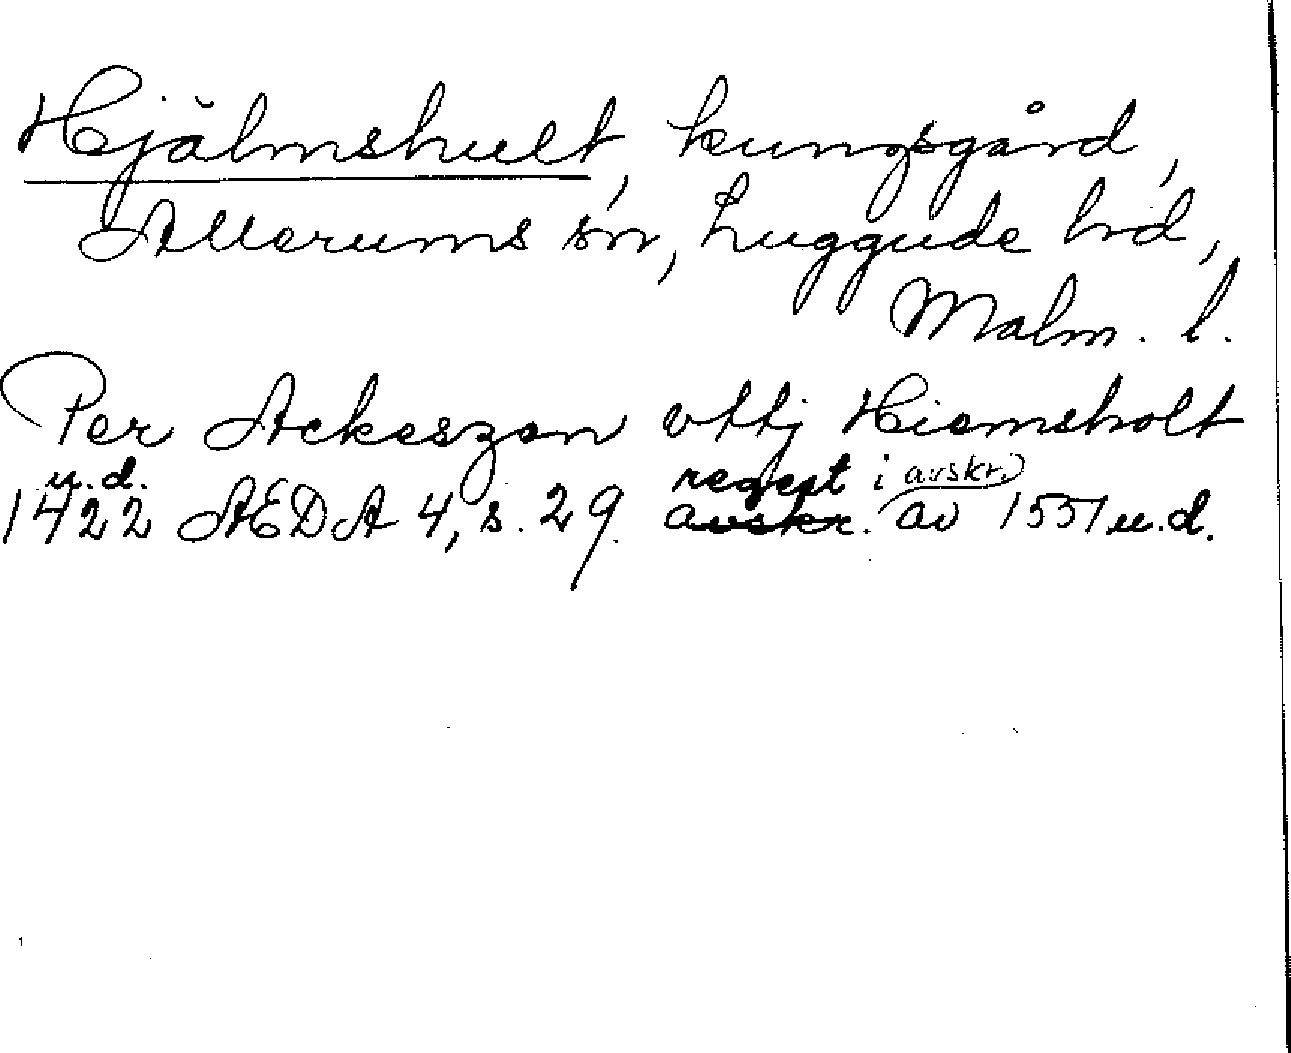 Hjälmshult, kungsgård,
Allerums sn, Luggude hd,
Malm. l.
Per Ackeszon vttj Hiemsholt
u.d. regest i avskr.
1422 AEDA 4, s. 29. avskr. av 1551 u.d.